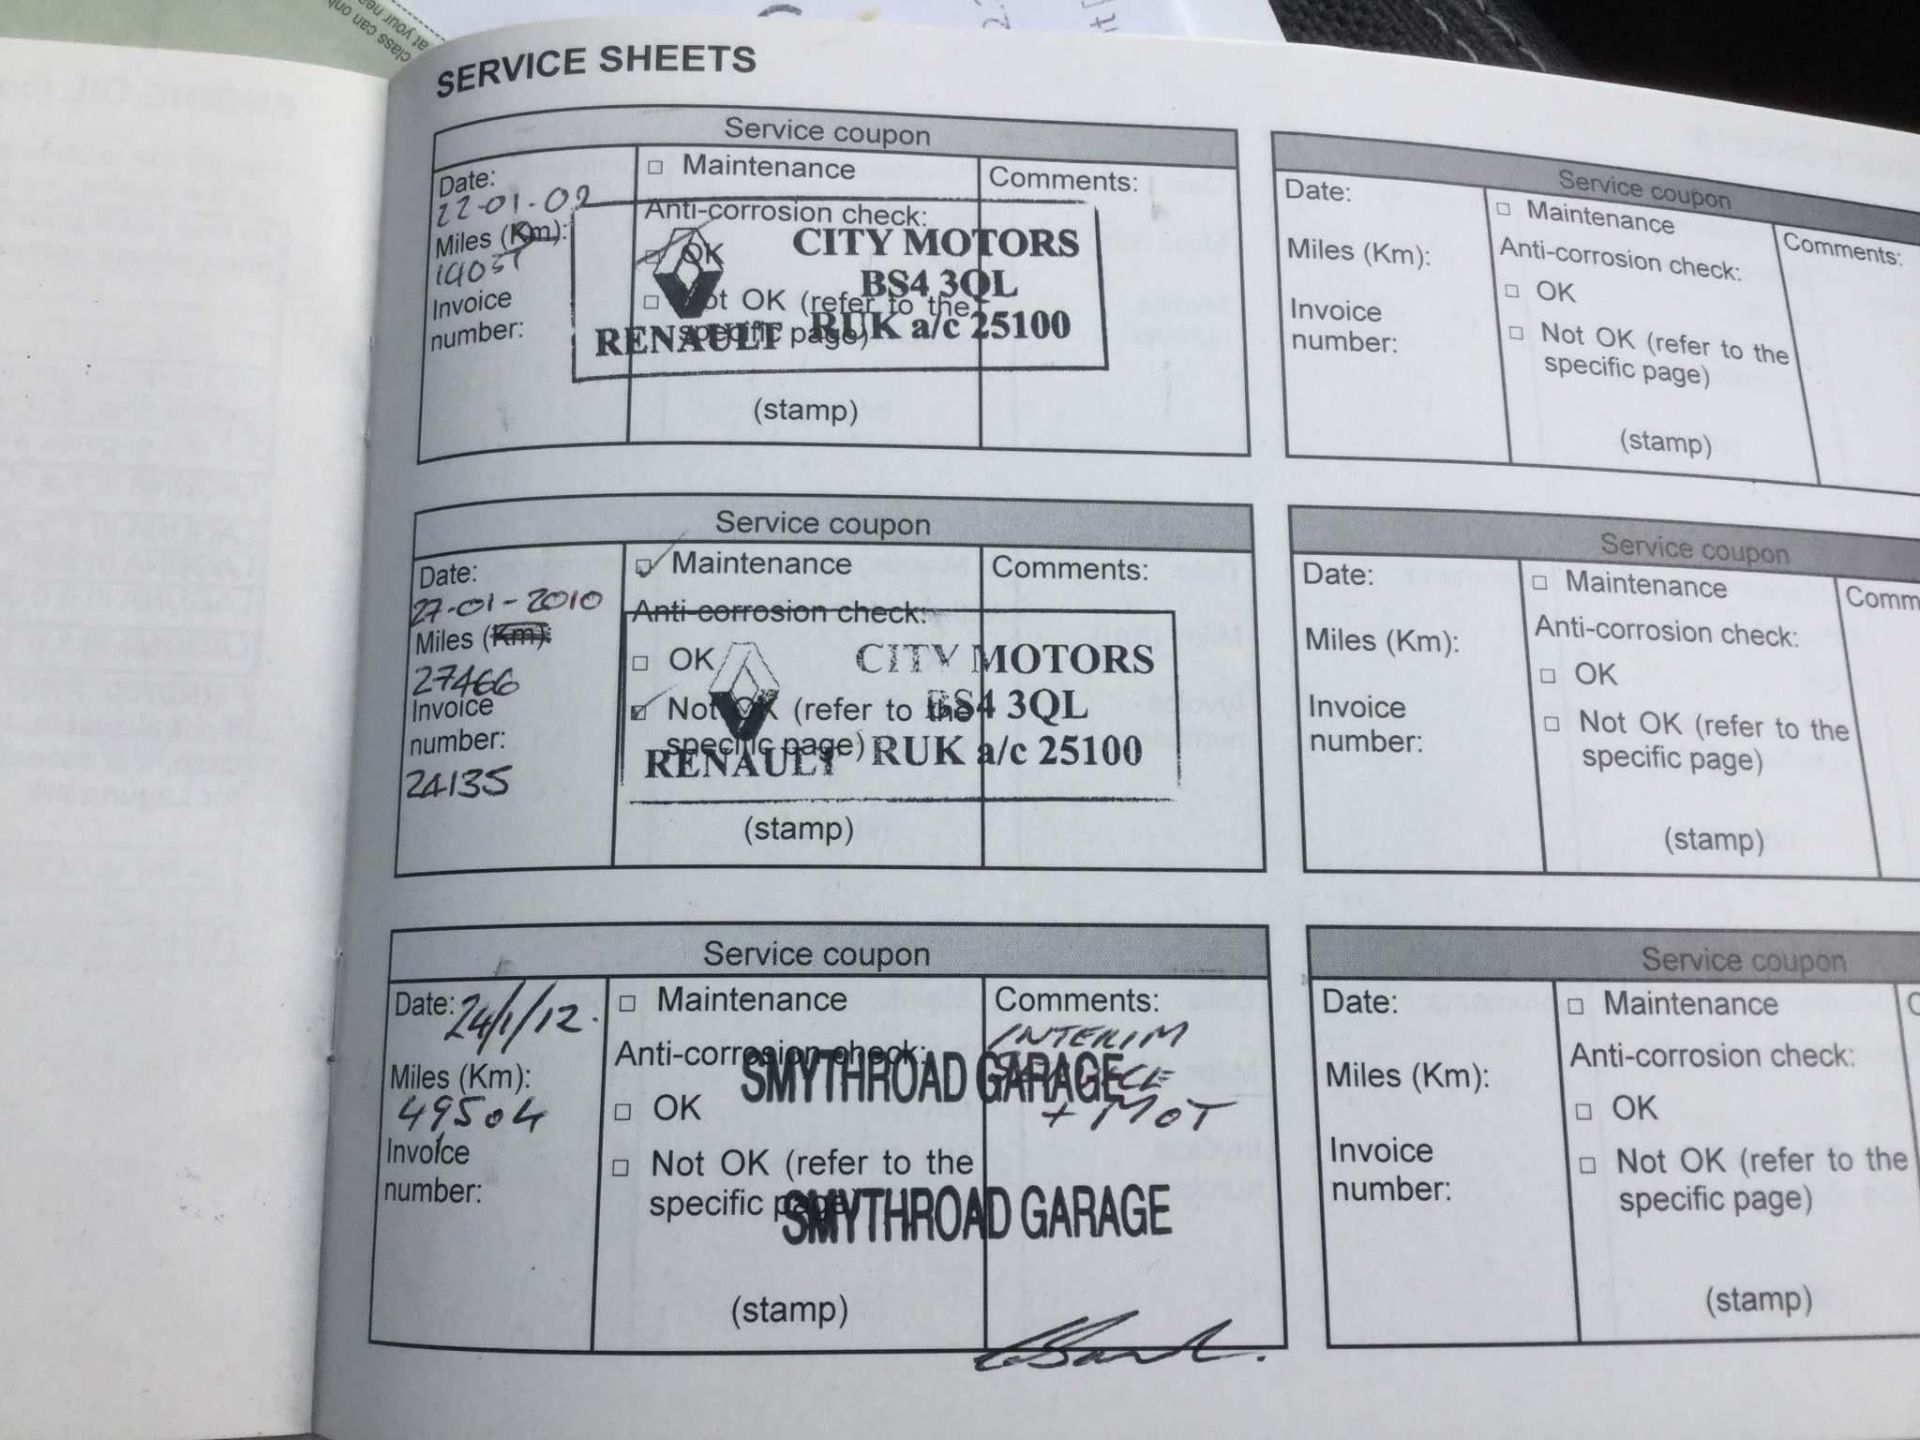 class can only
at your nea
SERVICE SHEETS
Service coupon
Date:
22-01-09
Miles (Km):
Invoice
number:
Maintenance
Anti-corrosion check:
OK
Not OK (refer to the
specific page)
(stamp)
Comments:
CITY MOTORS
BS4 3QL
RENAULT RUK a/c 25100
Service coupon
Date:
Miles (Km):
Invoice
number:
Maintenance
Anti-corrosion check:
OK
Not OK (refer to the
specific page)
(stamp)
Comments:
Service coupon
Date:
27-01-2010
Miles (Km):
27466
Invoice
number:
24135
Maintenance
Anti-corrosion check:
OK
Not OK (refer to the
specific page)
(stamp)
Comments:
CITY MOTORS
BS4 3QL
RENAULT RUK a/c 25100
Service coupon
Date:
Miles (Km):
Invoice
number:
Maintenance
Anti-corrosion check:
OK
Not OK (refer to the
specific page)
(stamp)
Comm
Service coupon
Date: 24/1/12.
Miles (Km):
49504
Invoice
number:
Maintenance
Anti-corrosion check:
OK
Not OK (refer to the
specific page)
(stamp)
Comments:
INTERIM
SERVICE
+ MOT
SMYTHROAD GARAGE
SMYTHROAD GARAGE
Service coupon
Date:
Miles (Km):
Invoice
number:
Maintenance
Anti-corrosion check:
OK
Not OK (refer to the
specific page)
(stamp)
C